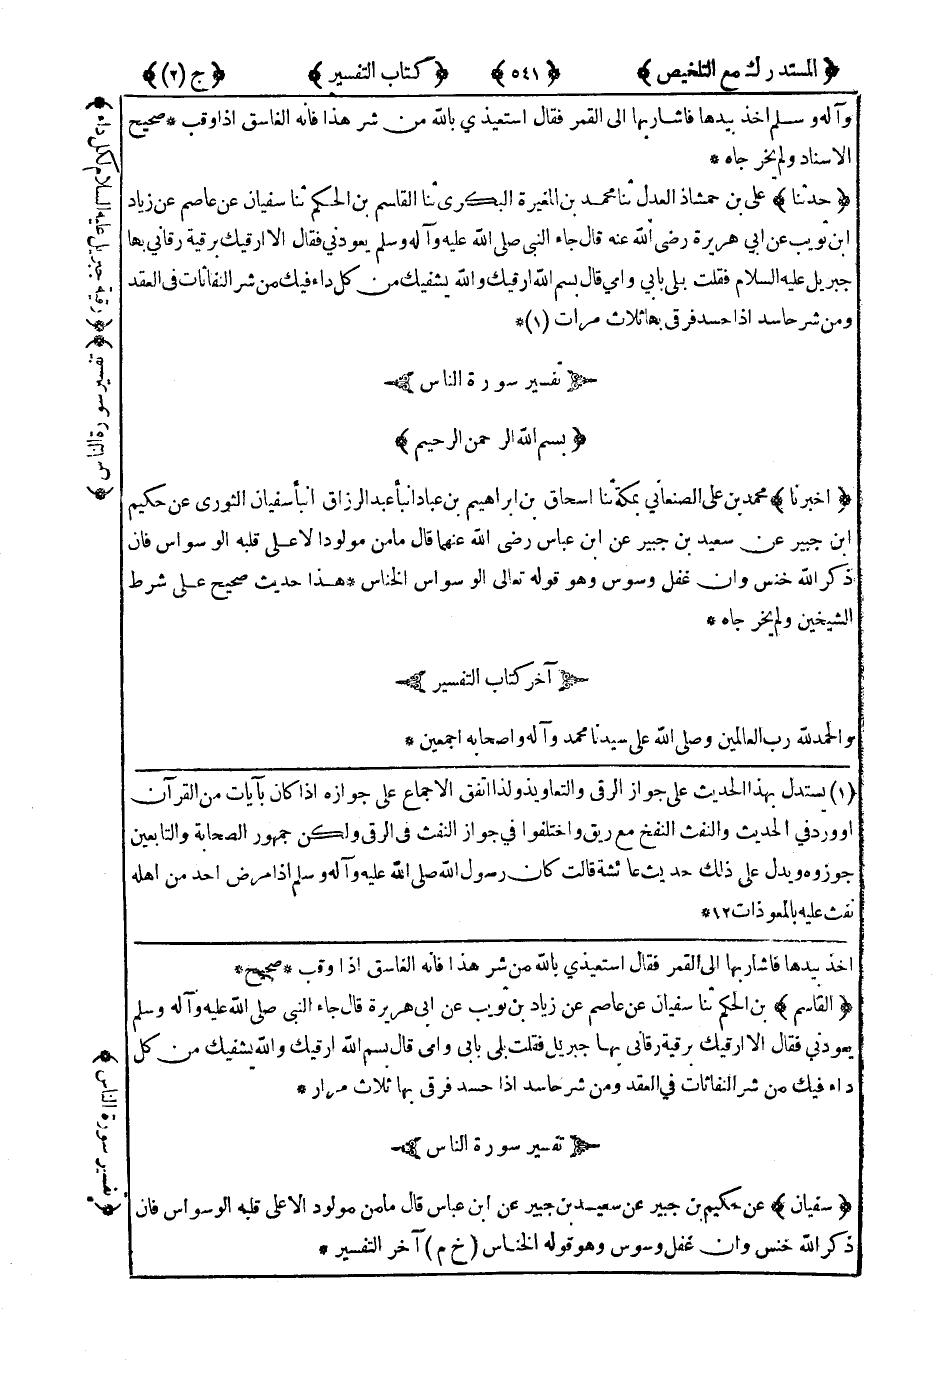 ﴿ المستدرك مع التلخيص ﴾ ﴿ ٥٤١ ﴾ ﴿ كتاب التفسير ﴾ ﴿ ج (٢) ﴾
وآله وسلم اخذ بيدها فاشار بها الى القمر فقال استعيذي بالله من شر هذا فانه الغاسق اذا وقب * صحيح
الاسناد ولم يخرجاه *
﴿ حدثنا ﴾ على بن حمشاذ العدل ثنا محمد بن المغيرة البكرى ثنا القاسم بن الحكم ثنا سفيان عن عاصم عن زياد
ابن ثويب عن ابي هريرة رضى الله عنه قال جاء النبي صلى الله عليه وآله وسلم يعودني فقال الا ارقيك برقية رقاني بها
جبريل عليه السلام فقلت بلى بابي وامي قال بسم الله ارقيك والله يشفيك من كل داء فيك من شر النفاثات في العقد
ومن شر حاسد اذا حسد فرقى بها ثلاث مرات (١)*
تفسير سورة الناس
﴿ بسم الله الرحمن الرحيم ﴾
﴿ اخبرنا ﴾ محمد بن على الصنعاني بمكة ثنا اسحاق بن ابراهيم بن عباد انبأ عبد الرزاق انبأ سفيان الثورى عن حكيم
ابن جبير عن سعيد بن جبير عن ابن عباس رضى الله عنهما قال ما من مولود الا على قلبه الوسواس فان
ذكر الله خنس وان غفل وسوس وهو قوله تعالى الوسواس الخناس * هذا حديث صحيح على شرط
الشيخين ولم يخرجاه *
آخر كتاب التفسير
والحمد لله رب العالمين وصلى الله على سيدنا محمد وآله واصحابه اجمعين *
(١) يستدل بهذا الحديث على جواز الرقى والتعاويذ ولذا اتفق الاجماع على جوازه اذا كان بآيات من القرآن
او ورد في الحديث والنفث النفخ مع ريق واختلفوا في جواز النفث فى الرقى ولكن جمهور الصحابة والتابعين
جوزوه ويدل على ذلك حديث عائشة قالت كان رسول الله صلى الله عليه وآله وسلم اذا مرض احد من اهله
نفث عليه بالمعوذات ١٢*
اخذ بيدها فاشار بها الى القمر فقال استعيذي بالله من شر هذا فانه الغاسق اذا وقب * صحيح *
﴿ القاسم ﴾ بن الحكم ثنا سفيان عن عاصم عن زياد بن ثويب عن ابى هريرة قال جاء النبي صلى الله عليه وآله وسلم
يعودني فقال الا ارقيك برقية رقانى بها جبريل فقلت بلى بابى وامى قال بسم الله ارقيك والله يشفيك من كل
داء فيك من شر النفاثات في العقد ومن شر حاسد اذا حسد فرقى بها ثلاث مرار *
تفسير سورة الناس
﴿ سفيان ﴾ عن حكيم بن جبير عن سعيد بن جبير عن ابن عباس قال ما من مولود الا على قلبه الوسواس فان
ذكر الله خنس وان غفل وسوس وهو قوله الخناس (خ م) آخر التفسير *
﴿ رقية جبريل عليه السلام لكل داء ﴾
﴿ تفسير سورة الناس ﴾
﴿ تفسير سورة الناس ﴾